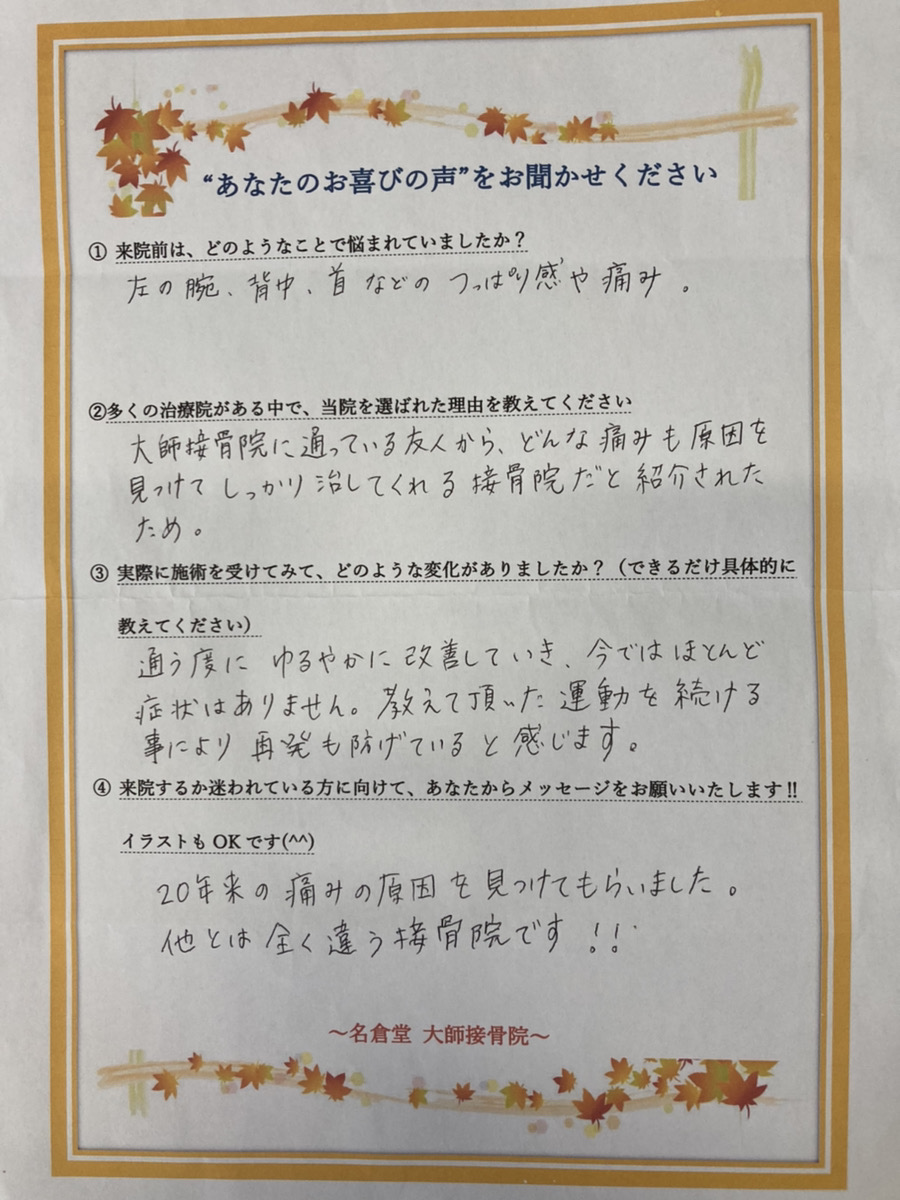 “あなたのお喜びの声”をお聞かせください
① 来院前は、どのようなことで悩まれていましたか？
左の腕、背中、首などの つっぱり感や痛み。
②多くの治療院がある中で、当院を選ばれた理由を教えてください
大師接骨院に通っている友人から、どんな痛みも原因を
見つけて しっかり治してくれる接骨院だと紹介された
ため。
③ 実際に施術を受けてみて、どのような変化がありましたか？（できるだけ具体的に
教えてください）
通う度に ゆるやかに改善していき、今ではほとんど
症状はありません。教えて頂いた運動を続ける
事により 再発も防げていると感じます。
④ 来院するか迷われている方に向けて、あなたからメッセージをお願いいたします!!
イラストも OK です(^^)
20年来の痛みの原因を見つけてもらいました。
他とは全く違う接骨院です!!
～名倉堂 大師接骨院～